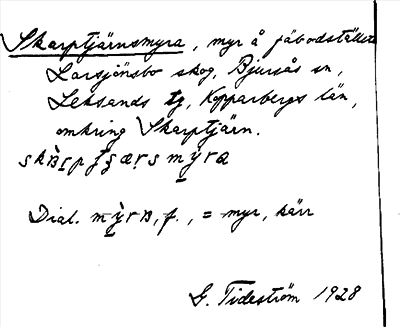 Skarptjärnsmyra, myr å fäbodstället
Larsjönsbo skog, Bjursås sn,
Leksands tg, Kopparbergs län,
omkring Skarptjärn.
Dial. , f., = myr, kärr
G. Tideström 1928